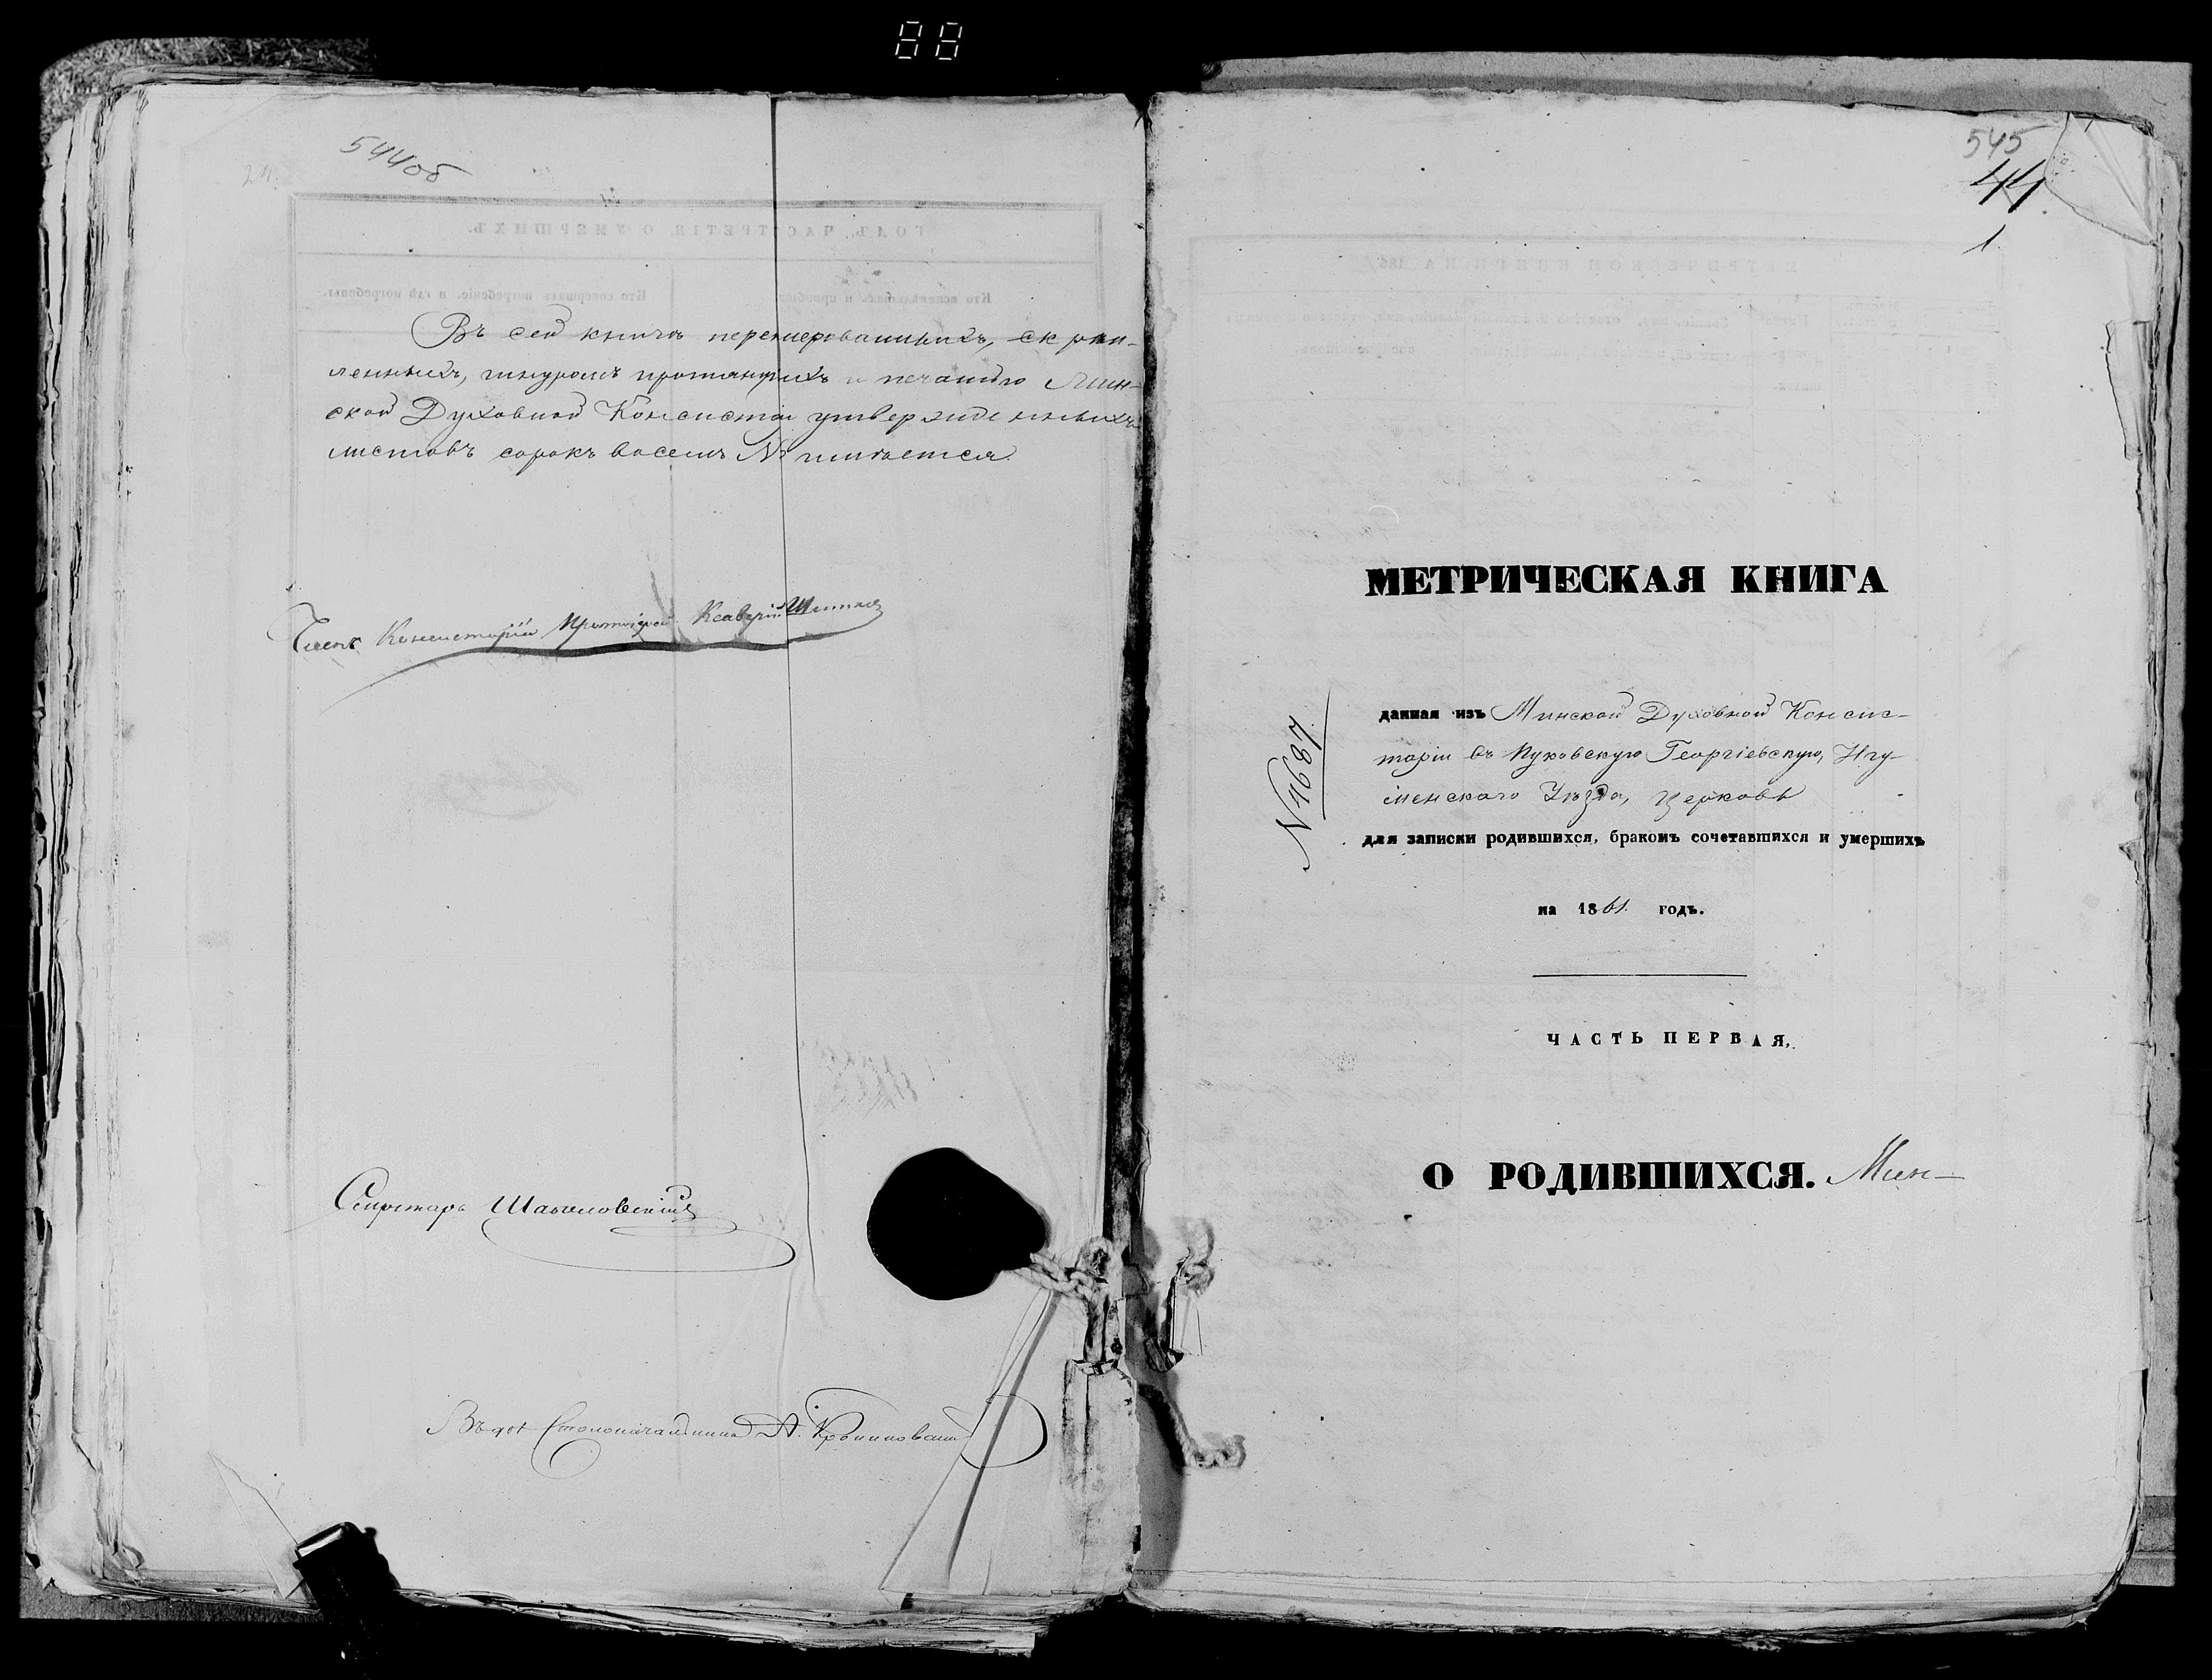 544об
Въ сей книгѣ перенумерованныхъ, скрѣп-
ленныхъ, шнуромъ протянутыхъ и печатью Мин-
ской Духовной Консисторіи утвержденныхъ
листовъ сорокъ восемь №
Членъ Консисторіи Протоіерей Ксаверій
Секретарь
Столоначальника А.
545
44
1
МЕТРИЧЕСКАЯ КНИГА
№ 4687
данная изъ Минской Духовной Консис-
торіи въ Пуховскую Георгіевскую, Игу-
менскаго Уѣзда, церковь
для записки родившихся, бракомъ сочетавшихся и умершихъ
на 1861. годъ.
ЧАСТЬ ПЕРВАЯ,
О РОДИВШИХСЯ. Мин-